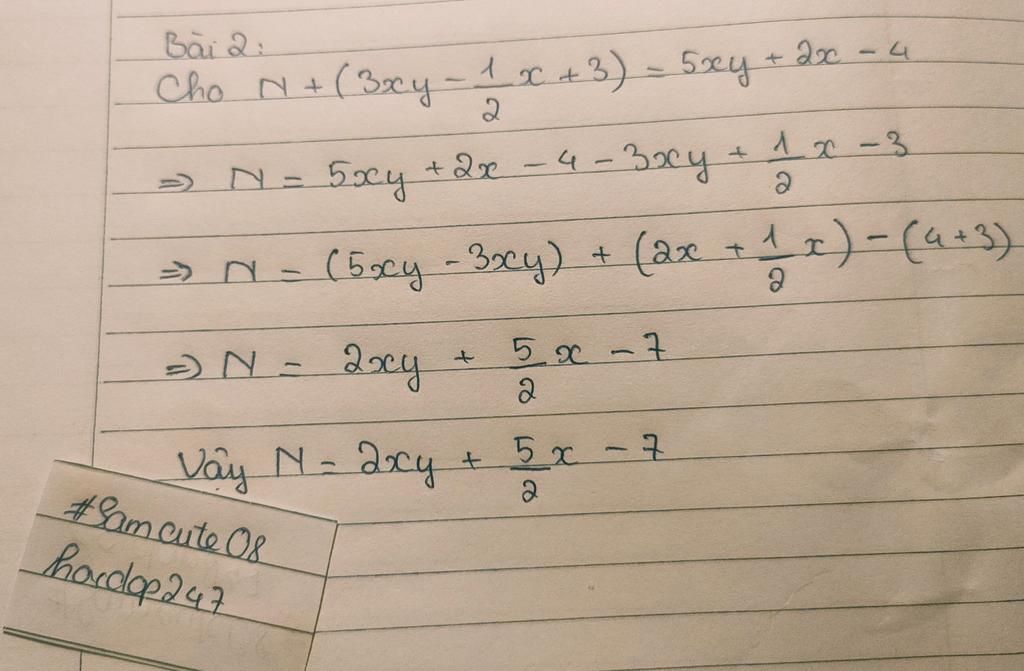 Bài 2:
Cho N + (3xy - 1/2 x + 3) = 5xy + 2x - 4
=> N = 5xy + 2x - 4 - 3xy + 1/2 x - 3
=> N = (5xy - 3xy) + (2x + 1/2 x) - (4 + 3)
=> N = 2xy + 5/2 x - 7
Vậy N = 2xy + 5/2 x - 7
#Samcute08
hoidap247